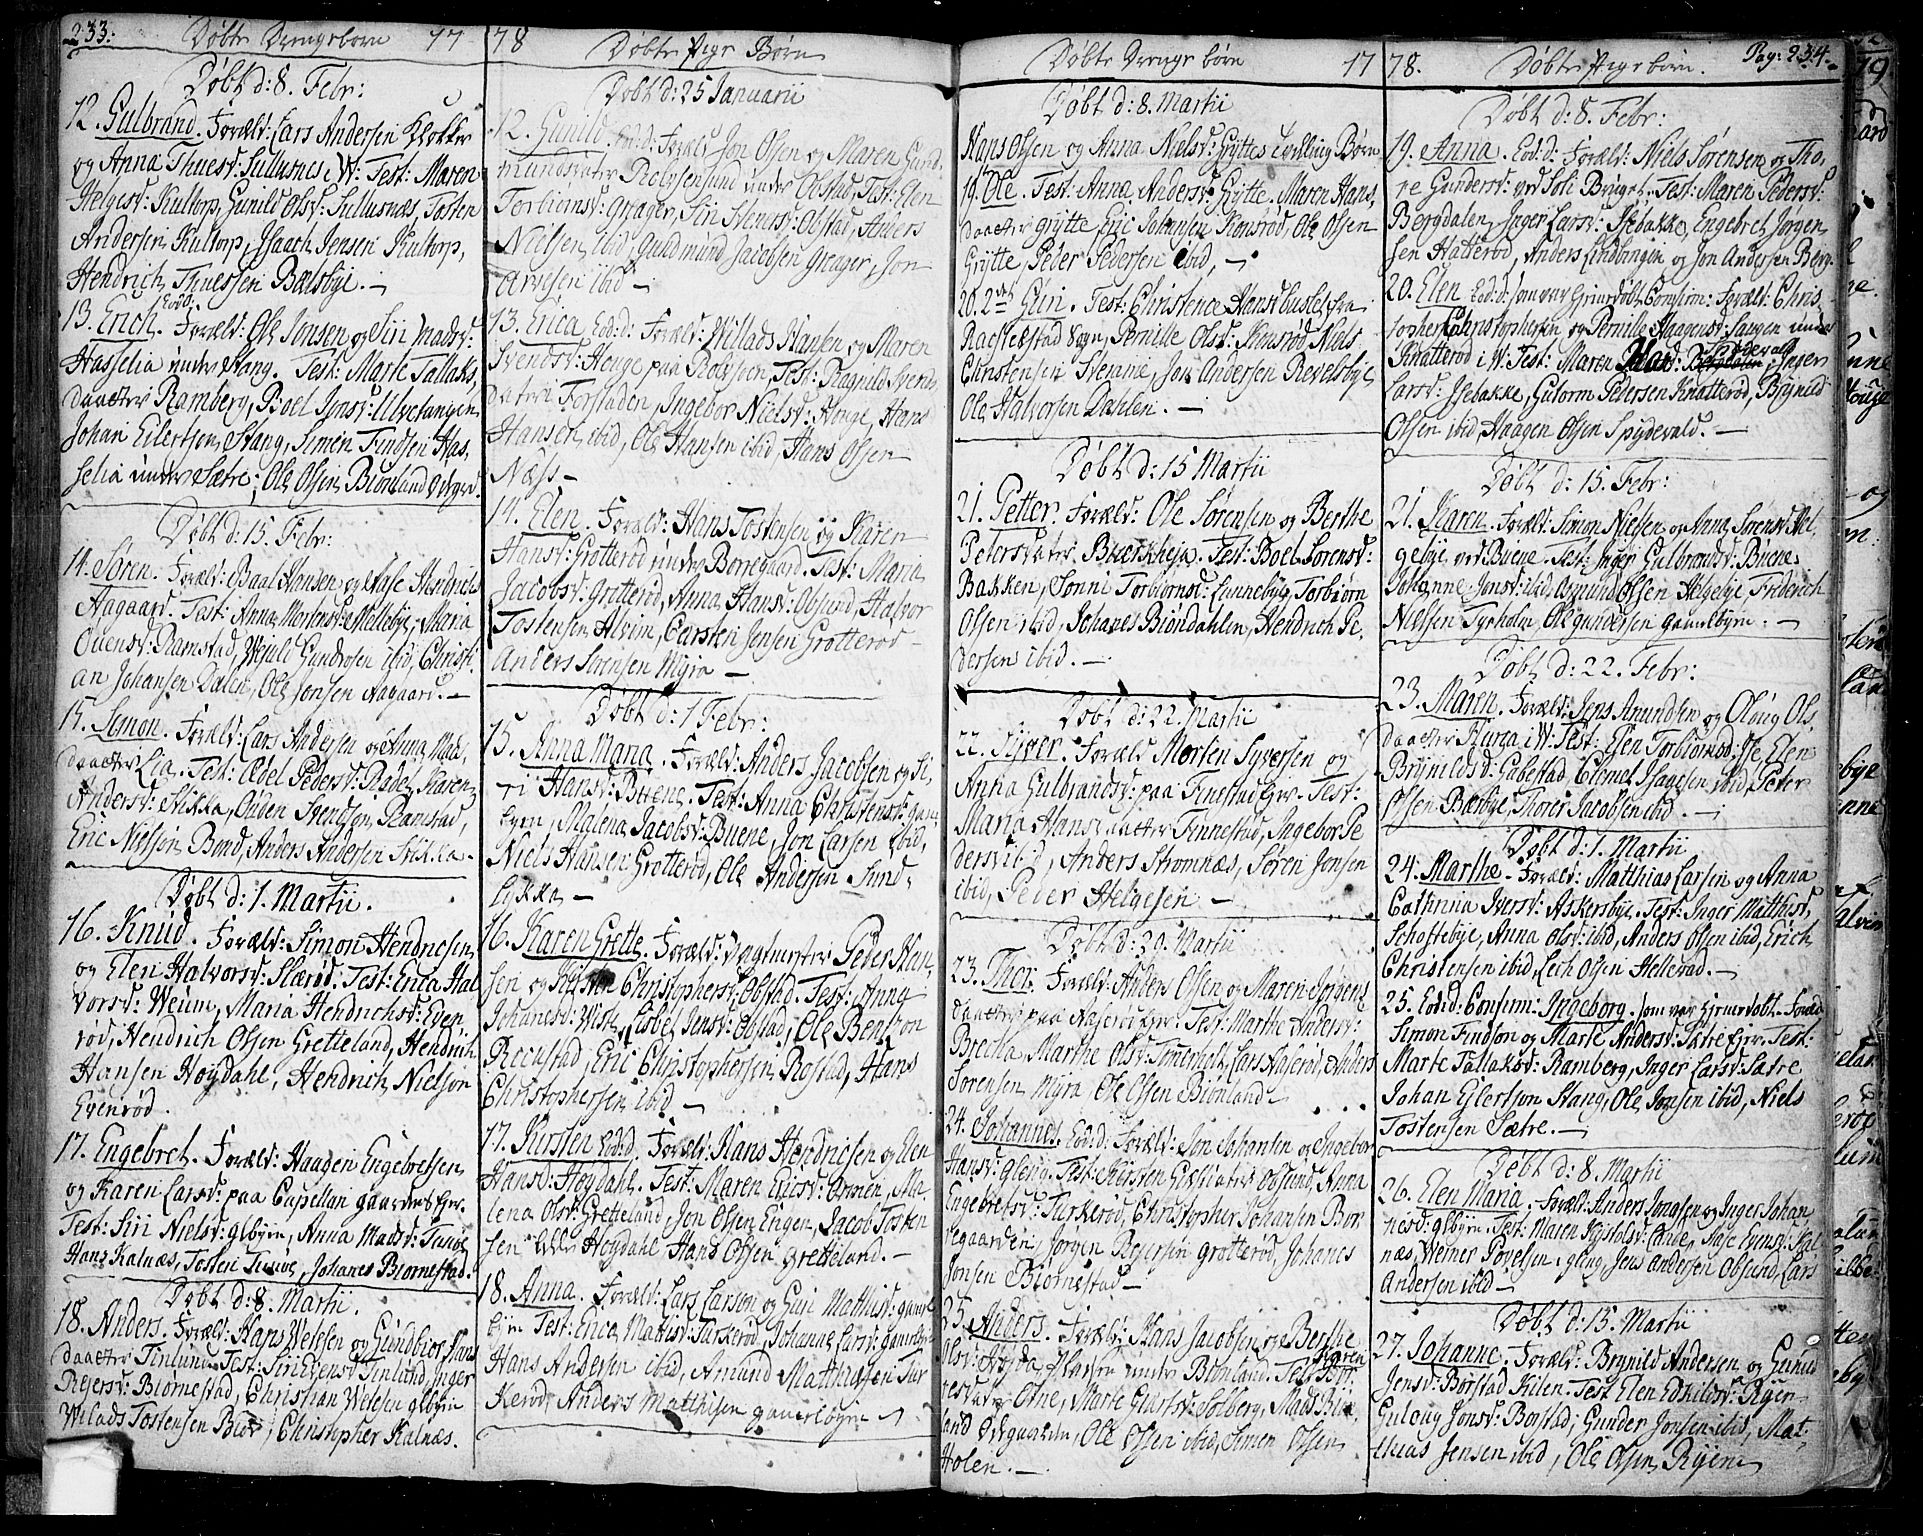 233: Døbte Drengebørn 17
Døbt d: 8. Febr:
12. Gulbrand. Foræld: Lars Andersen Klokker
og Anna Thuesd: Sullusnes i W: Test: Maren
Helgesd: Kultorp, Gunild Olsd: Sullusnæs, Tosten
Andersen Kultorp, Isaach Jensen Kultorp,
Hendrich Thuessen Bælsbye. —
13. Erich. Eod: Foræld: Ole Jonsen og Siri Madsd:
Hasselia under Stang. Test: Marte Tallaks,
daatter Ramberg, Boel Jonsd: Ulvetangen
Johan Eilertsen Stang, Simen Findsen Has,
selia under Sætre; Ole Olsen Biønland Ødegrd.
Døbt d: 15. Febr:
14. Søren. Foræld: Baal Hansen og Aase Hendrichs
Aagaard. Test: Anna Mortensd: Mellebye, Maria
Ouensd: Ramstad, Gundrosen ibid, Christi
an Johansen Dalen, Ole Jonsen Aagaard. —
15. Simon. Foræld: Lars Andersen og Anna Mads,
daatter Lia. Test: Ædel Pedersd: Rade, Karen
Andersd: Stikka, Ouden Svendsen Ramstad,
Eric Nielsøn Bond, Anders Andersen Stikka.
Døbt d: 1. Martii.
16. Knud. Foræld: Simon Hendricsen
og Elen Halvorsd: Slærød. Test: Erica Hal
vorsd: Weum, Maria Hendrichsd: Even
rød, Hendrich Olsen Gretteland, Hendrich
Hansen Høydahl, Hendrich Nielsøn
Evenrød.
17. Engebret. Foræld: Haagen Engebretsen
og Karen Larsd: paa Capellan gaardens Ejer.
Test: Siri Nielsd: glbyen, Anna Madsd: Tunøe
Hans Kalnæs, Tosten Tunöe, Johanes Biørnestad.
Døbt d: 8. Martii.
18. Anders. Foræld: Hans Welesen og Gundbior Hans
daatter Tinlund Test: Siri Evensd Tinlund, Inger
Rejersd: Biørnestad, Christian Welesen glbyen
Wilads Tostensen Biør, Christopher Kalnæs.
78 Døbte Pige Børn
Døbt d: 25 Januarii
12. Gunild. Eod: d: Foræld Jon Olsen og Maren Gund,
mundsdater Rolfsensund under Obstad, Test: Elen
Torbiørnsd: Greager, Siri Svensd: Obstad, Anders
Nielsen ibid, Guldmund Jacobsen Greager, Jon
Arvesen ibid —
13. Erica Eod: d: Foræld: Willads Hansen og Maren
Svendsd: Houge paa Rolfsøen, Test: Ragnild Svends
dater Forstaden, Ingebor Nielsd: Houge, Hans
Hansen ibid, Ole Hansen ibid, Hans Olsen
Næss —
14. Elen. Foræld: Hans Tostensen og Karen
Hansd: Grotterød under Borregaard. Test: Maria
Jacobsd: Grotterød, Anna Hansd: Obsund, Halvor
Tostensen Alvim, Carsten Jensen Grotterød
Anders Sørensen Myra —
Døbt d: 1 Febr:
15. Anna Maria. Foræld: Anders Jacobsen og Si,
ri Hansd: Buene. Test: Anna Christensd: gam,
byen, Malena Jacobsd: Buene, Jon Larsen ibid,
Niels Hansen Grotterød, Ole Andersen Sund,
Lykka —
16. Karen Grette. Foræld: Vagtmester Peder Han,
sen og Kirsten Christophersd: Obstad. Test: Anna
Johanesd: Wiste, Lisbet Jensd: Obstad, Ole Bentson
Recustad, Eric Christophersen Rostad, Hans
Christophersen ibid —
17. Kirsten Eod: d. Foræld: Hans Hendricsen og Elen
Hansd: Høydahl. Test: Maren Ericsd: Ormen, Ma,
lena Olsd: Gretteland, Jon Olsen Engen, Jacob Tosten
sen Høydahl Hans Olsen Gretteland. —
18. Anna. Foræld: Lars Larsøn og Guri Matthisd: gaml,
byen Test: Erica Mattisd: Turkerød, Johanne Larsd: gamelbyen
Hans Andersen ibid, Amund Matthissen Tur
kerød, Anders Matthisen gamelbyen —
Døbte Drenge børn 17
Døbt d: 8. Martii
Hans Olsen og Anna Nielsd: Gryttes tvilling Børn
19. Ole. Test: Anna Andersd: Grytte. Maren Hans,
daatter Grytte Eric Johansen Konsrød, Ole Olsen
Grytte Peder Pedersen ibid, —
20. 2de Guri. Test: Christence Hansd buseles fra
Rachestad Sogn, Pernille Olsd: Konsrød Niels
Christensen Svenne, Jon Andersen Revelsbye,
Ole Halvorsen Dahlen. —
Døbt d: 15 Martii
21. Petter. Foræld: Ole Sørensen og Berthe
Petersdater Bierkheja. Test: Boel Sørensd:
Bakken, Sønni Torbiørnsd: Lennebye, Torbiørn
Olsen ibid, Johanes Biøndahlen, Hendrich Pe,
dersen ibid. —
Døbt d: 22. Martii
22. Syver. Foræld Morten Syversen og
Anna Gulbrandsd: paa Finestad Ejer. Test:
Maria Hans, daatter Finnestad, Ingebor Pe
dersd ibid, Anders Strømnæs, Søren Jonsen
ibid, Peder Helgesen —
Døbt d: 29. Martii
23. Thor. Foræld: Anders Olsen og Maren Jørgens
daatter paa Aaserød Ejer. Test: Marthe Andersd:
Brecka, Marthe Olsd: Timerholt, Lars Aaserød, Anders
Sørensen Myra, Ole Olsen Biønland
24. Johannes. Eod: d: Foræld: Jon Johansen og Ingebor
Hansd: Gleng. Test: Kirsten Obsund, Anna
Engebretsd: Turkerød, Christopher Johansen Bor
regaarden, Jørgen Bejersen Grotterød, Johanes
Jonsen Biørnestad —
25. Anders. Foræld: Hans Jacobsen og Berthe
Olsd: Høyda Pladsen under Biønland. Test: Karen Bør,
resdater Otne, Marte Gluttsd: Solberg, Mads Biø,
land Ødegaarden, Ole Olsen ibid, Simen Olsen
Holen. —
78. Døbte Pige børn. Pag: 234.
Døbt d: 8. Febr:
19. Anna. Eod: d: Foræld: Niels Sørensen og Tho,
re Gundersd: ved Soli Bruget. Test: Maren Pedersd:
Bergdalen, Inger Larsd: Isebakke, Engebret Jørgen
sen Hatterød, Anders Lindbingen og Jon Andersen Berg
20. Elen Eod: d: som var hjemdøbt Consim: Foræld: Chris,
topher Christophersen og Pernille Haagensd: Saugen under
Knatterød i W: Test: Maren Spydevald, Inger
Larsd: Isebakke, Gutorm Pedersen Knatterød, Brynild
Olsen ibid, Haagen Olsen Spydevald. —
Døbt d: 15. Febr:
21. Karen. Foræld: Simon Nielsen og Anna Sørensd: Hel
gebye ved Buene. Test: Inger Gulbrandsd: Buene,
Johanne Jonsd: ibid, Asmund Olsen Helgebye, Friderich
Nielsen Tyrholm, Ole Gundersen Gamelbyen. —
Døbt d: 22. Febr:
23. Maren. Foræld: Jens Anundsen og Oloug Ols,
daatter Kurra i W: Test: Elen Torbiørnsd: Ise Elen
Brynildsd: Gabestad, Clemet Isagsen ibid, Peter
Olsen Bærbye, Thorer Jacobsen ibid. —
Døbt d: 1. Martii
24. Marthe. Foræld: Matthias Larsen og Anna
Cathrina Iversd: Askersbye. Test: Inger Matthisd,
Schoftebye, Anna Olsd: ibid, Anders Olsen ibid, Erich
Christensen ibid, Lech Olsen Hellerød. —
25. Eodid. Consirm: Ingeborg. som var Hjemmedøbt. Foræld
Simon Findsøn og Marte Andersd: Sætre Ejer. Test:
Marte Tallaksd: Ramberg, Inger Larsd: Sætre
Johan Ejlertson Stang, Ole Jonsen ibid, Niels
Tostensen Sætre. —
Døbt d: 8. Martii
26. Elen Maria. Foræld: Anders Jonssen og Inger Johan
nesd: glbyen. Test: Maren Lande, Aase Evensd: Kal
næs, Weiner Povelsen gleng, Jens Andersen Obsund, Lars
Andersen ibid —
Døbt d: 15. Martii
27. Johanne. Foræld: Brynild Andersen og Gunild
Jensd: Borstad Kilen. Test Elen Edkildsd: Ryen
Guloug Jonsd: Borstad; Gunder Jonsen ibid, Mat,
thias Jensen ibid, Ole Olsen Ryen